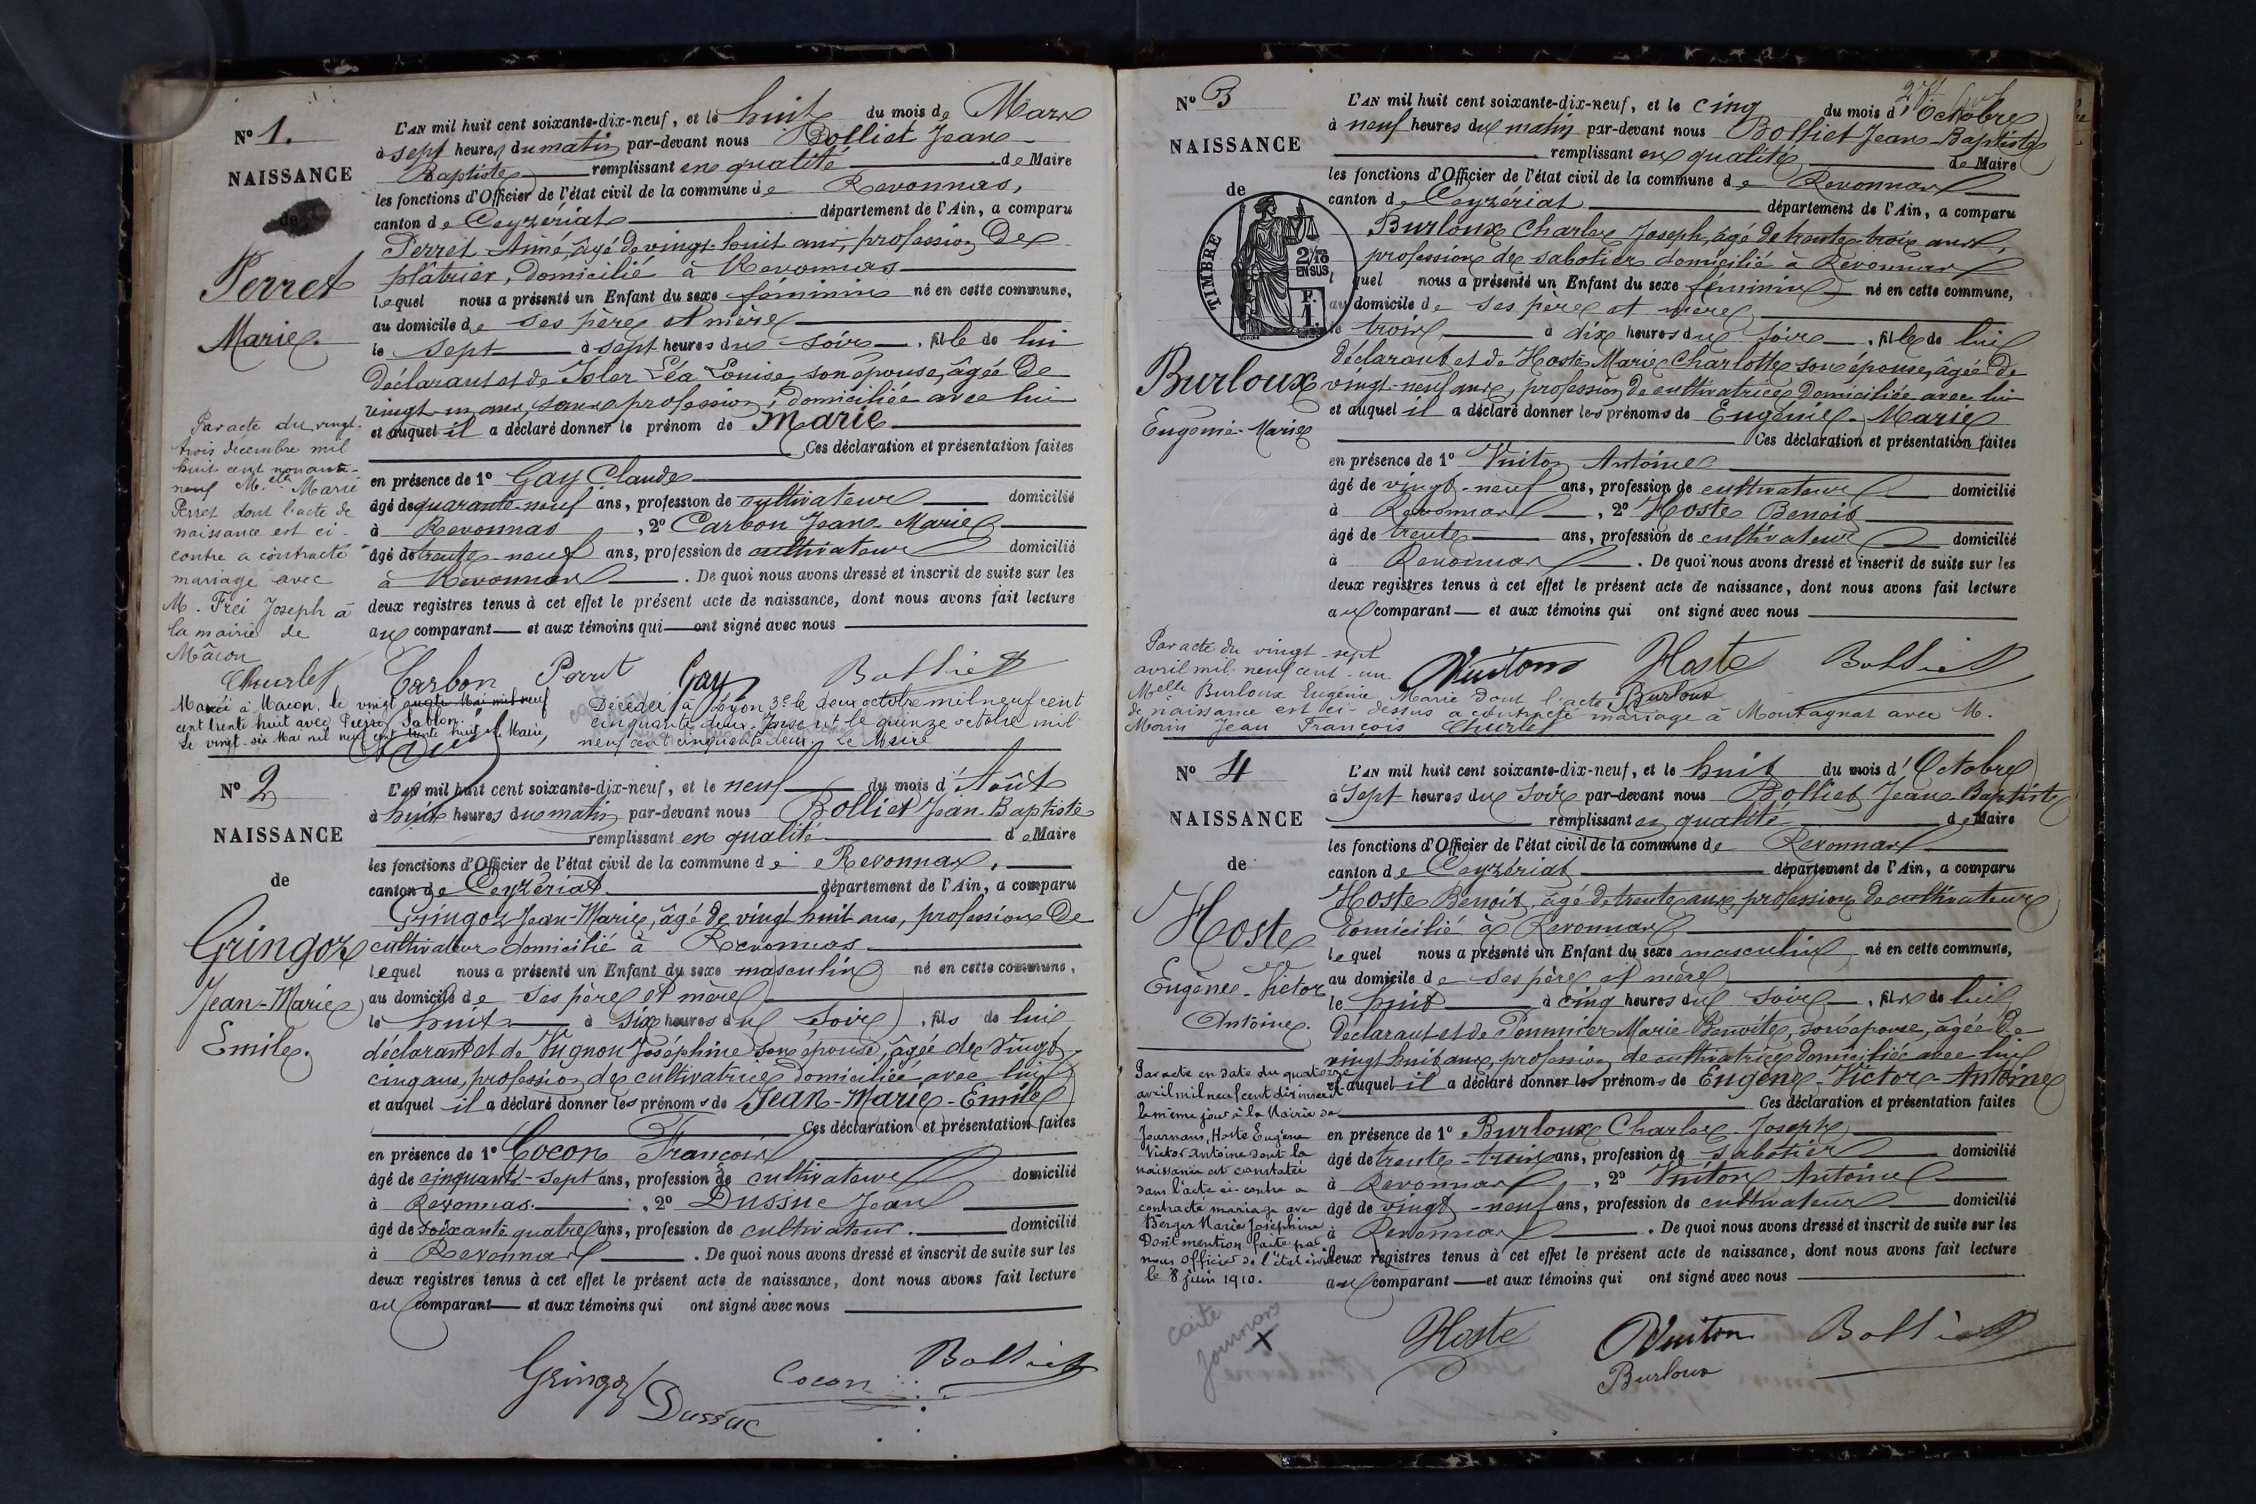 N° 1.
NAISSANCE
de
Perret
Marie.
L'AN mil huit cent soixante-dix-neuf, et le huit du mois de Mars
à sept heures du matin par-devant nous Bolliet Jean
Baptiste remplissant en qualité de Maire
les fonctions d'Officier de l'état civil de la commune de Revonnas,
canton de Ceyzériat département de l'Ain, a comparu
Perret Aimé, âgé de vingt-huit ans, profession de
plâtrier, domicilié à Revonnas
lequel nous a présenté un Enfant du sexe féminin né en cette commune,
au domicile de ses père et mère
le sept à sept heures du soir, fille de lui
déclarant et de Isler Léa Louise, son épouse, âgée de
vingt-un ans, sans profession, domiciliée avec lui
et auquel il a déclaré donner le prénom de Marie
Ces déclaration et présentation faites
en présence de 1° Gay Claude
âgé de quarante-neuf ans, profession de cultivateur domicilié
à Revonnas, 2° Carbon Jean-Marie
âgé de trente-neuf ans, profession de cultivateur domicilié
à Revonnas. De quoi nous avons dressé et inscrit de suite sur les
deux registres tenus à cet effet le présent acte de naissance, dont nous avons fait lecture
au comparant et aux témoins qui ont signé avec nous
Par acte du vingt-
trois décembre mil
huit cent nonante-
neuf M.elle Marie
Perret dont l'acte de
naissance est ci-
contre a contracté
mariage avec
M. Frei Joseph à
la mairie de
Mâcon
Churlet
Carbon Perret Gay Bolliet
Marié à Macon, le vingt quatre Mai mil neuf
cent trente huit avec Pierre Sablon.
Le vingt-six Mai mil neuf cent trente huit. Le Maire,
Décédée à Lyon 3e le deux octobre mil neuf cent
cinquante deux. le quinze octobre mil
neuf cent cinquante deux Le Maire
N° 2
NAISSANCE
de
Gringoz
Jean-Marie
Emile.
L'AN mil huit cent soixante-dix-neuf, et le neuf du mois d'Août
à huit heures du matin par-devant nous Bolliet Jean-Baptiste
remplissant en qualité de Maire
les fonctions d'Officier de l'état civil de la commune de Revonnas,
canton de Ceyzériat département de l'Ain, a comparu
Gringoz Jean-Marie, âgé de vingt huit ans, profession de
cultivateur domicilié à Revonnas
lequel nous a présenté un Enfant du sexe masculin né en cette commune,
au domicile de ses père et mère
le huit à six heures du soir, fils de lui
déclarant et de Vugnon Joséphine son épouse, âgée de vingt
cinq ans, profession de cultivatrice domiciliée avec lui
et auquel il a déclaré donner les prénoms de Jean-Marie-Emile
Ces déclaration et présentation faites
en présence de 1° Cocon François
âgé de cinquante-sept ans, profession de cultivateur domicilié
à Revonnas., 2° Dussuc Jean
âgé de soixante quatre ans, profession de cultivateur. domicilié
à Revonnas. De quoi nous avons dressé et inscrit de suite sur les
deux registres tenus à cet effet le présent acte de naissance, dont nous avons fait lecture
au comparant et aux témoins qui ont signé avec nous
Gringoz Cocon Bolliet
Dussuc
N° 3
NAISSANCE
de
TIMBRE
2/10
EN SUS
F.
1.
Burloux
Eugénie-Marie
L'AN mil huit cent soixante-dix-neuf, et le cinq du mois d'Octobre
à neuf heures du matin par-devant nous Bolliet Jean-Baptiste
remplissant en qualité de Maire
les fonctions d'Officier de l'état civil de la commune de Revonnas
canton de Ceyzériat département de l'Ain, a comparu
Burloux Charles Joseph, âgé de trente-trois ans,
profession de sabotier domicilié à Revonnas
lequel nous a présenté un Enfant du sexe féminin né en cette commune,
au domicile de ses père et mère
le trois à dix heures du soir, fille de lui
déclarant et de Hoste Marie Charlotte son épouse, âgée de
vingt-neuf ans, profession de cultivatrice domiciliée avec lui
et auquel il a déclaré donner les prénoms de Eugénie-Marie
Ces déclaration et présentation faites
en présence de 1° Vuiton Antoine
âgé de vingt-neuf ans, profession de cultivateur domicilié
à Revonnas, 2° Hoste Benoit
âgé de trente ans, profession de cultivateur domicilié
à Revonnas. De quoi nous avons dressé et inscrit de suite sur les
deux registres tenus à cet effet le présent acte de naissance, dont nous avons fait lecture
au comparant et aux témoins qui ont signé avec nous
Vuiton Hoste Bolliet
Burloux
Par acte du vingt-sept
avril mil-neuf cent-un
Melle Burloux Eugénie Marie dont l'acte
de naissance est ci-dessus a contracté mariage à Montagnat avec M.
Morin Jean François Churlet
N° 4
NAISSANCE
de
Hoste
Eugène-Victor
Antoine.
L'AN mil huit cent soixante-dix-neuf, et le huit du mois d'Octobre
à sept heures du soir par-devant nous Bolliet Jean-Baptiste
remplissant en qualité de Maire
les fonctions d'Officier de l'état civil de la commune de Revonnas
canton de Ceyzériat département de l'Ain, a comparu
Hoste Benoit, âgé de trente ans profession de cultivateur
domicilié à Revonnas
lequel nous a présenté un Enfant du sexe masculin né en cette commune,
au domicile de ses père et mère
le huit à cinq heures du soir, fils de lui
déclarant et de Pommier Marie Benoite, son épouse, âgée de
vingt huit ans, profession de cultivatrice domiciliée avec lui
et auquel il a déclaré donner les prénoms de Eugène-Victor-Antoine
Ces déclaration et présentation faites
en présence de 1° Burloux Charles Joseph
âgé de trente-trois ans, profession de sabotier domicilié
à Revonnas, 2° Vuiton Antoine
âgé de vingt-neuf ans, profession de cultivateur domicilié
à Revonnas. De quoi nous avons dressé et inscrit de suite sur les
deux registres tenus à cet effet le présent acte de naissance, dont nous avons fait lecture
au comparant et aux témoins qui ont signé avec nous
Par acte en date du quatorze
avril mil neuf cent dix inscrit
le même jour à la Mairie de
Journans, Hoste Eugène
Victor Antoine dont la
naissance est constatée
dans l'acte ci-contre a
contracté mariage avec
Berger Marie Joséphine
Dont mention faite par
nous officier de l'état civil
le 8 juin 1910.
carte
Journans
Hoste Vuiton Bolliet
Burloux